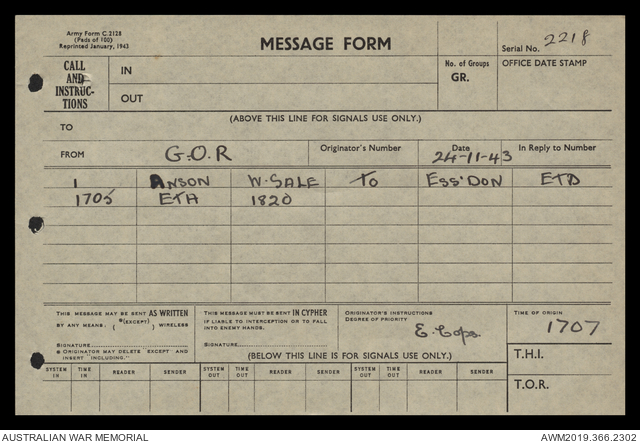 Army Form C.2128
(Pads of 100)
Reprinted January, 1943
MESSAGE FORM
Serial No. 2218
CALL AND INSTRUC-TIONS
IN
OUT
No. of Groups
GR.
OFFICE DATE STAMP
(ABOVE THIS LINE FOR SIGNALS USE ONLY.)
TO
FROM G.O.R
Originator's Number
Date 24-11-43
In Reply to Number
1 ANSON W. SALE TO ESS'DON ETD
1705 ETA 1820
THIS MESSAGE MAY BE SENT AS WRITTEN
BY ANY MEANS. *(EXCEPT) WIRELESS
SIGNATURE
* ORIGINATOR MAY DELETE "EXCEPT" AND INSERT "INCLUDING."
THIS MESSAGE MUST BE SENT IN CYPHER
IF LIABLE TO INTERCEPTION OR TO FALL INTO ENEMY HANDS.
SIGNATURE
ORIGINATOR'S INSTRUCTIONS
DEGREE OF PRIORITY
E. Cops.
TIME OF ORIGIN
1707
T.H.I.
T.O.R.
(BELOW THIS LINE IS FOR SIGNALS USE ONLY.)
SYSTEM IN TIME IN READER SENDER SYSTEM OUT TIME OUT READER SENDER SYSTEM OUT TIME OUT READER SENDER
AUSTRALIAN WAR MEMORIAL
AWM2019.366.2302